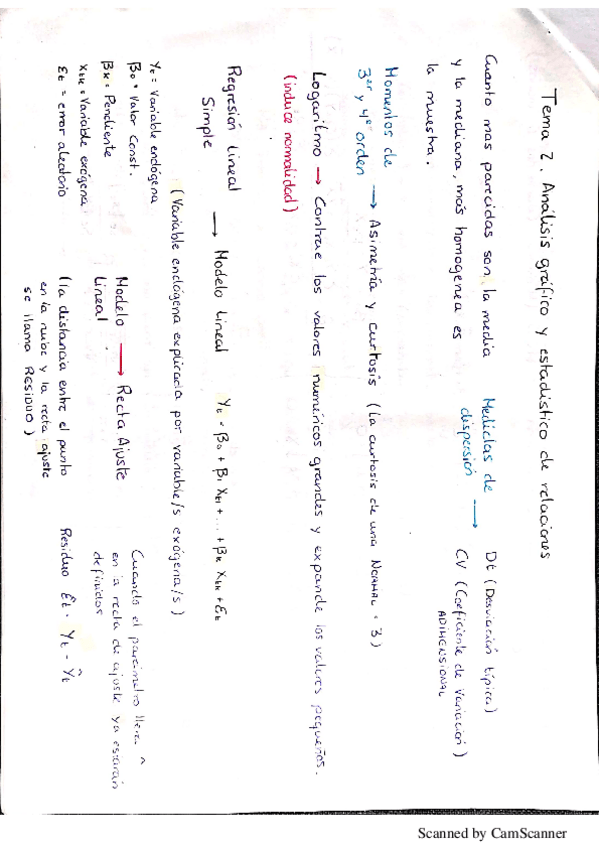 Tema 2. Análisis gráfico y estadístico de relaciones
Cuanto mas parecidas son la media
y la mediana, más homogenea es
la muestra.
Medidas de
dispersión →
Dt (Desviación típica)
CV (Coeficiente de Variación)
ADIMENSIONAL
Momentos de
3er y 4º orden → Asimetría y curtosis (La curtosis de una NORMAL = 3)
Logaritmo → Contrae los valores numéricos grandes y expande los valores pequeños.
(induce normalidad)
Regresión Lineal
Simple → Modelo Lineal Yt = β0 + β1 Xt1 + ... + βk Xtk + Et
(Variable endógena explicada por variable/s exógena/s)
Yt = Variable endógena
β0 = Valor Const.
βk = Pendiente
Xtk = Variable exógena
Ɛt = error aleatorio
Modelo → Recta Ajuste
Lineal
(la distancia entre el punto
en la nube y la recta ajuste
se llama RESIDUO)
Cuando el parámetro lleva ^
en la recta de ajuste ya estarán
definidos
Residuo Ɛ̂t = Yt - Ŷt
Scanned by CamScanner